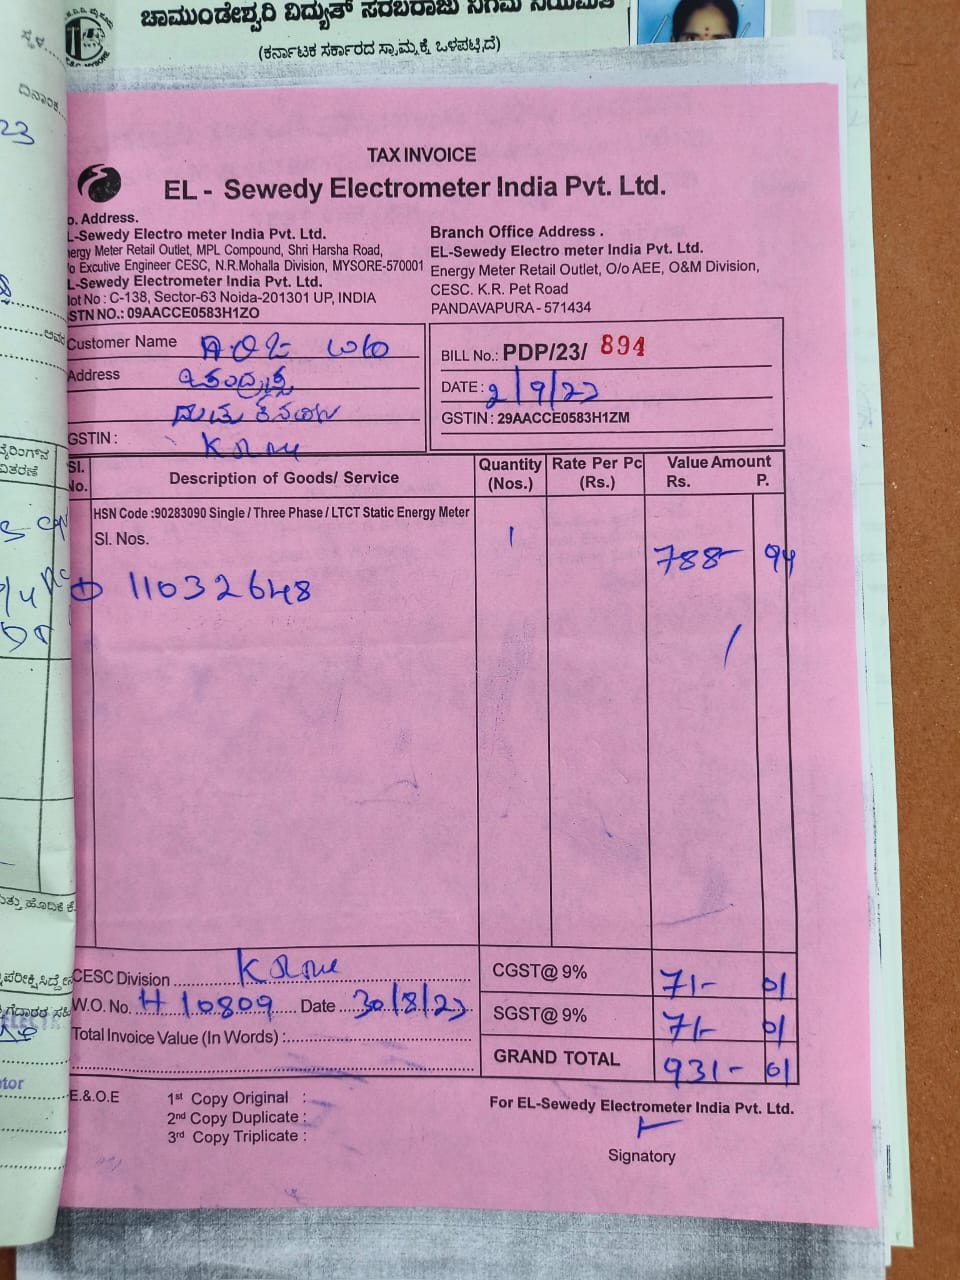 ಚಾಮುಂಡೇಶ್ವರಿ ವಿದ್ಯುತ್ ಸರಬರಾಜು ನಿಗಮ ನಿಯಮಿತ
(ಕರ್ನಾಟಕ ಸರ್ಕಾರದ ಸ್ವಾಮ್ಯಕ್ಕೆ ಒಳಪಟ್ಟಿದೆ)
ದಿನಾಂಕ
23
TAX INVOICE
EL - Sewedy Electrometer India Pvt. Ltd.
o. Address.
L-Sewedy Electro meter India Pvt. Ltd.
nergy Meter Retail Outlet, MPL Compound, Shri Harsha Road,
/o Excutive Engineer CESC, N.R.Mohalla Division, MYSORE-570001
L-Sewedy Electrometer India Pvt. Ltd.
lot No : C-138, Sector-63 Noida-201301 UP, INDIA
STN NO.: 09AACCE0583H1ZO
Branch Office Address .
EL-Sewedy Electro meter India Pvt. Ltd.
Energy Meter Retail Outlet, O/o AEE, O&M Division,
CESC. K.R. Pet Road
PANDAVAPURA - 571434
Customer Name
Address
GSTIN :
BILL No.: PDP/23/ 894
DATE : 2/9/23
GSTIN : 29AACCE0583H1ZM
Sl. No. Description of Goods/ Service Quantity (Nos.) Rate Per Pc (Rs.) Value Amount Rs. P.
HSN Code :90283090 Single / Three Phase / LTCT Static Energy Meter
Sl. Nos. 1 788- 94
11032648
CESC Division
CGST@ 9% 71- 01
W.O. No. H 10809 Date 30/8/23
SGST@ 9% 71- 01
Total Invoice Value (In Words) :
GRAND TOTAL 931- 01
E.& O.E
1st Copy Original :
2nd Copy Duplicate :
3rd Copy Triplicate :
For EL-Sewedy Electrometer India Pvt. Ltd.
Signatory